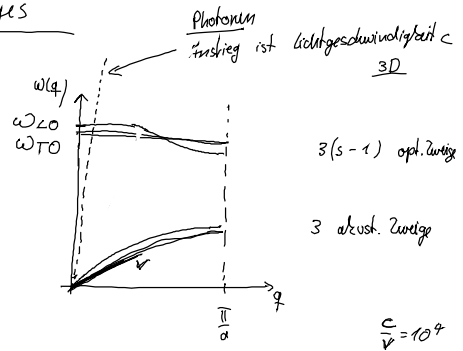 Photonen
Anstieg ist Lichtgeschwindigkeit c
3D
ω(q)
ωLO
ωTO
3(s-1) opt. Zweige
3 akust. Zweige
v
q
π/a
c/v = 10⁴